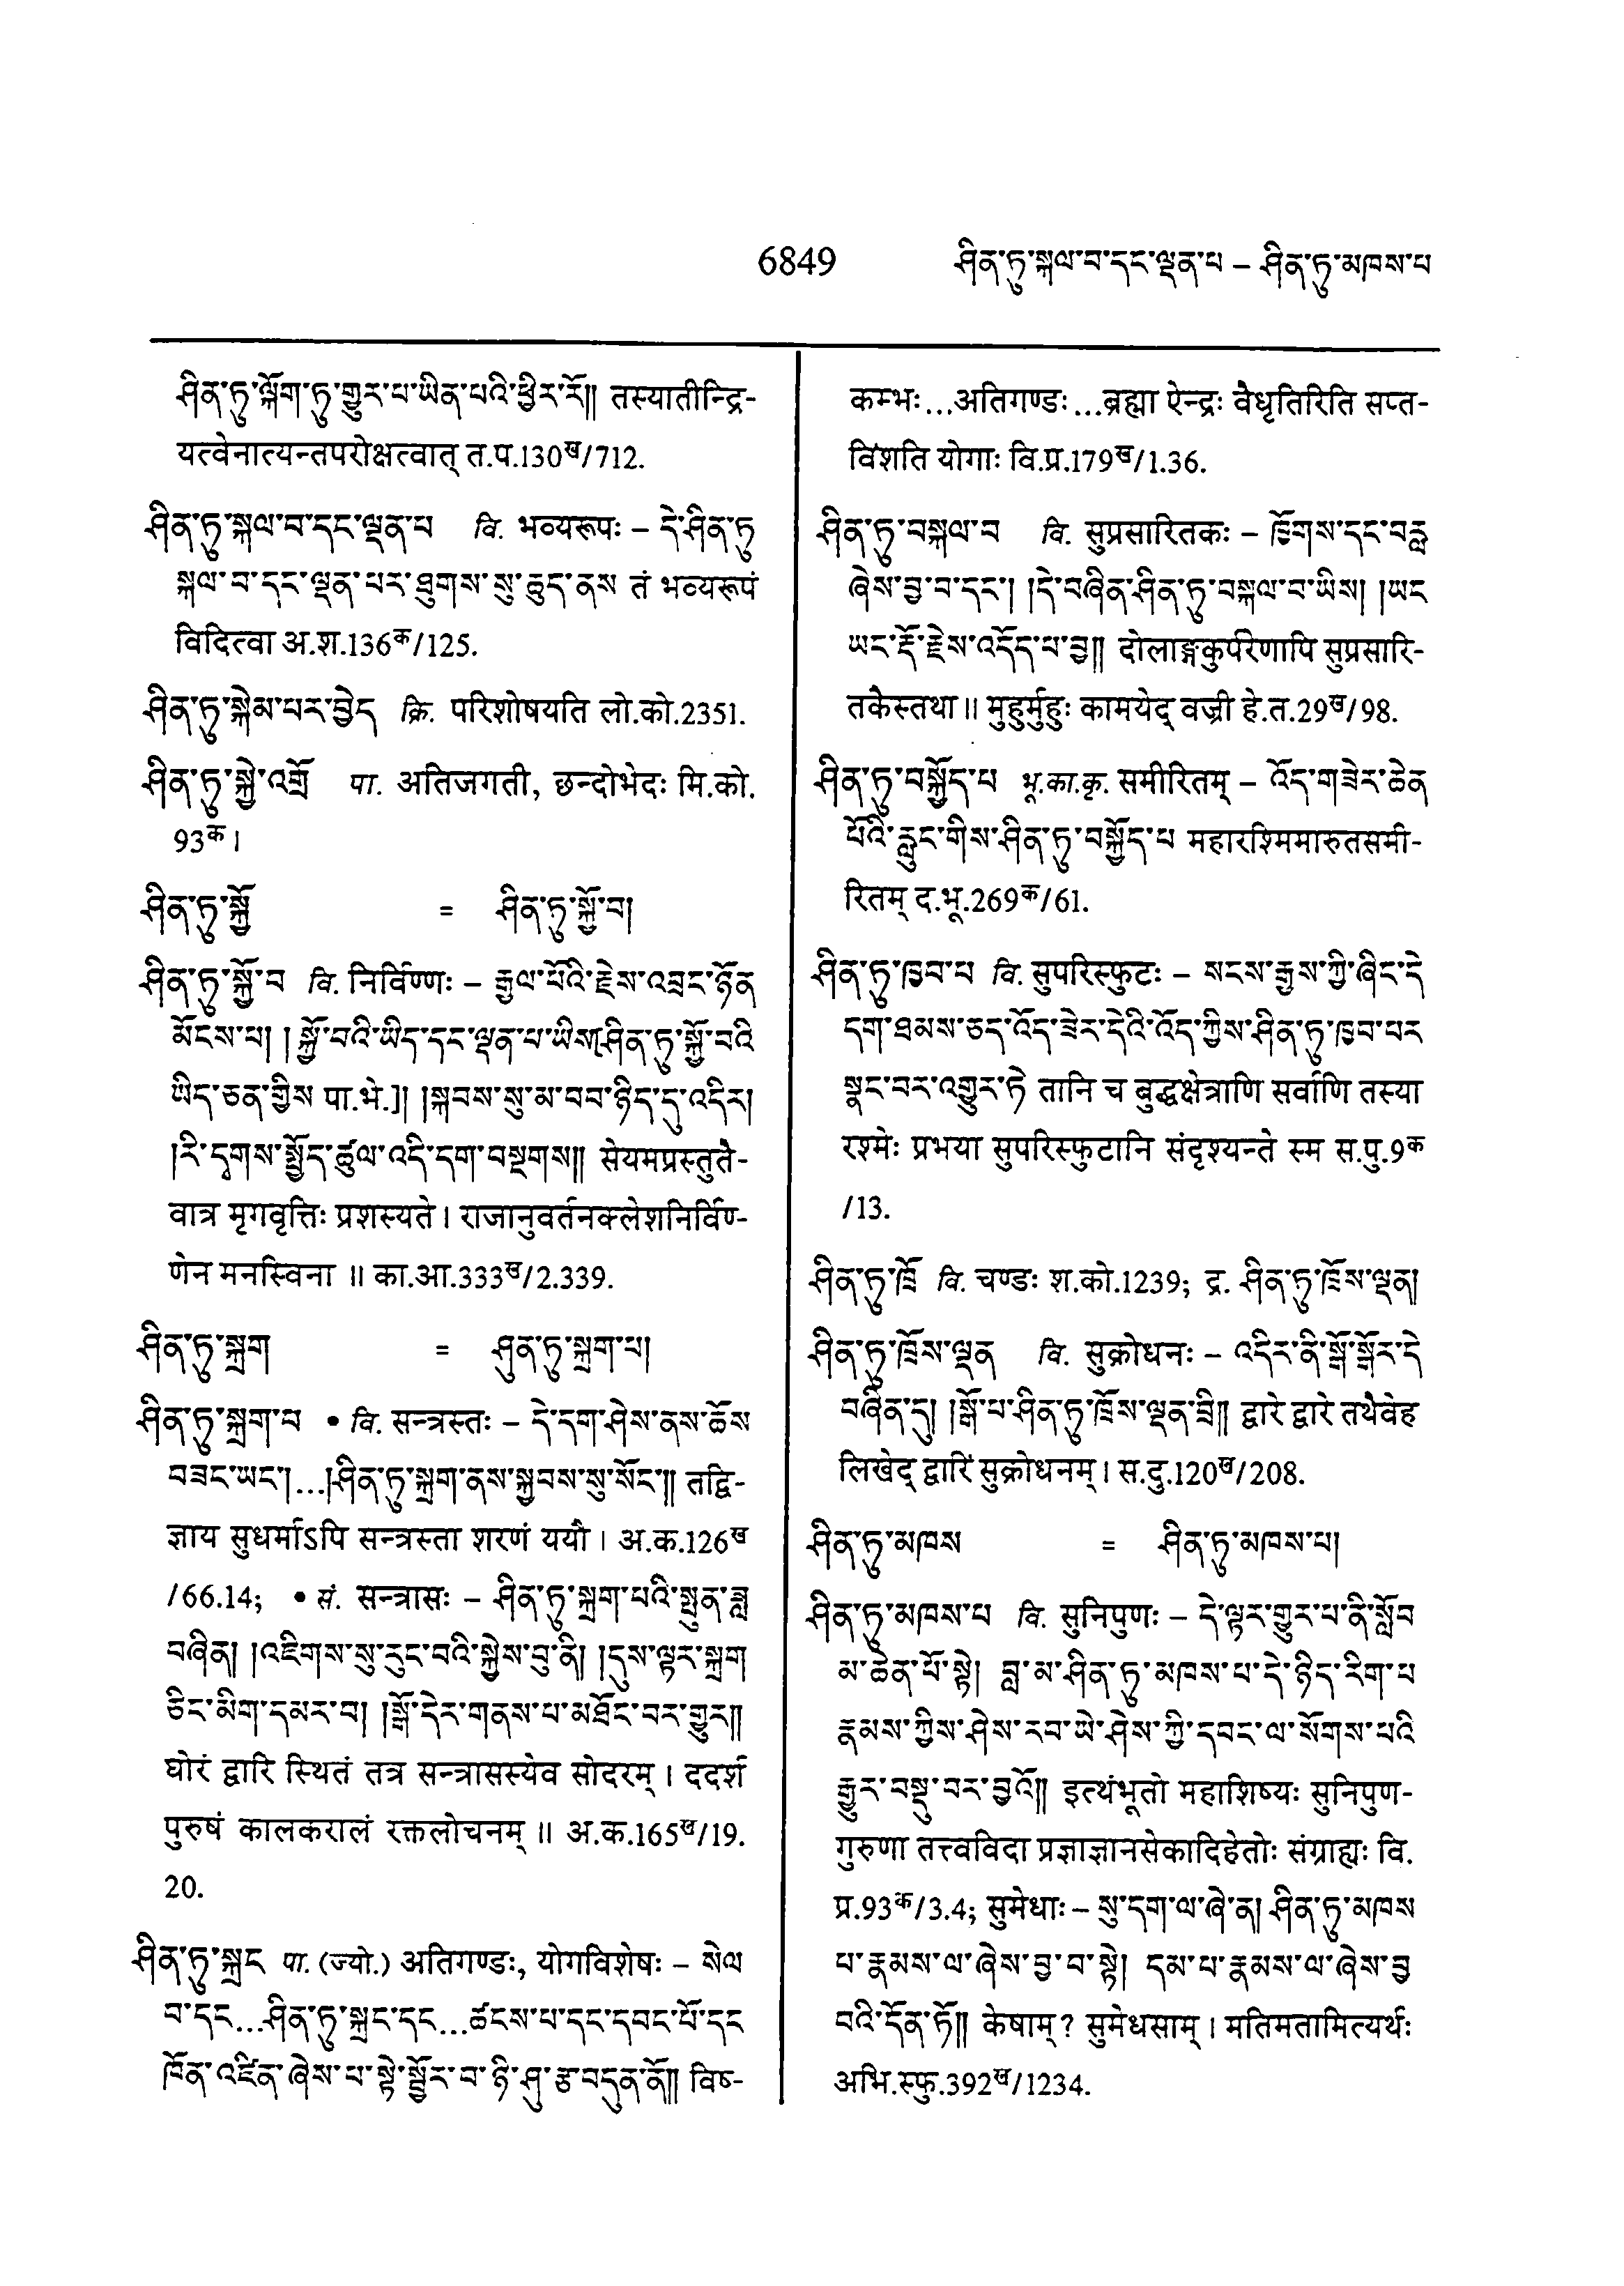 6849 ཤིན་ཏུ་སྐལ་བ་དང་ལྡན་པ – ཤིན་ཏུ་མཁས་པ
ཤིན་ཏུ་ལྐོག་ཏུ་གྱུར་པ་ཡིན་པའི་ཕྱིར་རོ།། तस्यातीन्द्रि-
यत्वेनात्यन्तपरोक्षत्वात् त.प.130ख/712.
ཤིན་ཏུ་སྐལ་བ་དང་ལྡན་པ वि. भव्यरूपः – དེ་ཤིན་ཏུ
སྐལ་བ་དང་ལྡན་པར་ཐུགས་སུ་ཆུད་ནས तं भव्यरूपं
विदित्वा अ.श.136क/125.
ཤིན་ཏུ་སྐེམ་པར་བྱེད क्रि. परिशोषयति लो.को.2351.
ཤིན་ཏུ་སྐྱེ་འགྲོ पा. अतिजगती, छन्दोभेदः मि.को.
93क।
ཤིན་ཏུ་སྐྱོ = ཤིན་ཏུ་སྐྱོ་བ།
ཤིན་ཏུ་སྐྱོ་བ वि. निर्विण्णः – རྒྱལ་པོའི་རྗེས་འབྲང་ཉོན
མོངས་པ། །སྐྱོ་བའི་ཡིད་དང་ལྡན་པ་ཡིས[ཤིན་ཏུ་སྐྱོ་བའི
ཡིད་ཅན་གྱིས पा.भे.]། །སྐབས་སུ་མ་བབ་ཉིད་དུ་འདིར།
།རི་དྭགས་སྤྱོད་ཚུལ་འདི་དག་བསྔགས།། सेयमप्रस्तुतै-
वात्र मृगवृत्तिः प्रशस्यते। राजानुवर्तनक्लेशनिर्विण्-
णेन मनस्विना ॥ का.आ.333ख/2.339.
ཤིན་ཏུ་སྐྲག = ཤུན་ཏུ་སྐྲག་པ།
ཤིན་ཏུ་སྐྲག་པ • वि. सन्त्रस्तः – དེ་དག་ཤེས་ནས་ཆོས
བཟང་ཡང་།...།ཤིན་ཏུ་སྐྲག་ནས་སྐྱབས་སུ་སོང་།། तद्वि-
ज्ञाय सुधर्माऽपि सन्त्रस्ता शरणं ययौ। अ.क.126ख
/66.14; • सं. सन्त्रासः – ཤིན་ཏུ་སྐྲག་པའི་སྤུན་ཟླ
བཞིན། །འཇིགས་སུ་རུང་བའི་སྐྱེས་བུ་ནི། །དུས་ལྟར་སྐྲག
ཅིང་མིག་དམར་བ། །སྒོ་དེར་གནས་པ་མཐོང་བར་གྱུར།།
घोरं द्वारि स्थितं तत्र सन्त्रासस्येव सोदरम्। ददर्श
पुरुषं कालकरालं रक्तलोचनम् ॥ अ.क.165ख/19.
20.
ཤིན་ཏུ་སྐྲང पा. (ज्यो.) अतिगण्डः, योगविशेषः – སེལ
བ་དང...ཤིན་ཏུ་སྐྲང་དང...ཚངས་པ་དང་དབང་པོ་དང
ཁོན་འཛིན་ཞེས་པ་སྟེ་སྦྱོར་བ་ཉི་ཤུ་རྩ་བདུན་ནོ།། विष्-
कम्भः...अतिगण्डः...ब्रह्मा ऐन्द्रः वैधृतिरिति सप्त-
विंशति योगाः वि.प्र.179ख/1.36.
ཤིན་ཏུ་བསྐལ་བ वि. सुप्रसारितकः – ཁྲོགས་དང་བརླ
ཞེས་བྱ་བ་དང་། །དེ་བཞིན་ཤིན་ཏུ་བསྐལ་བ་ཡིས། །ཡང
ཡང་རྡོ་རྗེས་འདོད་པ་བྱ།། दोलाङ्गकुर्परेणापि सुप्रसारि-
तकैस्तथा॥ मुहुर्मुहुः कामयेद् वज्री हे.त.29ख/98.
ཤིན་ཏུ་བསྐྱོད་པ भू.का.कृ. समीरितम् – འོད་གཟེར་ཆེན
པོའི་རླུང་གིས་ཤིན་ཏུ་བསྐྱོད་པ महारश्मिमारुतसमी-
रितम् द.भू.269क/61.
ཤིན་ཏུ་ཁྱབ་པ वि. सुपरिस्फुटः – སངས་རྒྱས་ཀྱི་ཞིང་དེ
དག་ཐམས་ཅད་འོད་ཟེར་དེའི་འོད་ཀྱིས་ཤིན་ཏུ་ཁྱབ་པར
སྣང་བར་འགྱུར་ཏེ तानि च बुद्धक्षेत्राणि सर्वाणि तस्या
रश्मेः प्रभया सुपरिस्फुटानि संदृश्यन्ते स्म स.पु.9क
/13.
ཤིན་ཏུ་ཁྲོ वि. चण्डः श.को.1239; द्र. ཤིན་ཏུ་ཁྲོས་ལྡན།
ཤིན་ཏུ་ཁྲོས་ལྡན वि. सुक्रोधनः – འདིར་ནི་སྒོ་སྒོར་དེ
བཞིན་དུ། །སྒོ་པ་ཤིན་ཏུ་ཁྲོས་ལྡན་བྲི།། द्वारे द्वारे तथैवेह
लिखेद् द्वारिं सुक्रोधनम्। स.दु.120ख/208.
ཤིན་ཏུ་མཁས = ཤིན་ཏུ་མཁས་པ།
ཤིན་ཏུ་མཁས་པ वि. सुनिपुणः – དེ་ལྟར་གྱུར་པ་ནི་སློབ
མ་ཆེན་པོ་སྟེ། བླ་མ་ཤིན་ཏུ་མཁས་པ་དེ་ཉིད་རིག་པ
རྣམས་ཀྱིས་ཤེས་རབ་ཡེ་ཤེས་ཀྱི་དབང་ལ་སོགས་པའི
རྒྱུར་བསྡུ་བར་བྱའོ།། इत्थंभूतो महाशिष्यः सुनिपुण-
गुरुणा तत्त्वविदा प्रज्ञाज्ञानसेकादिहेतोः संग्राह्यः वि.
प्र.93क/3.4; सुमेधाः – སུ་དག་ལ་ཞེ་ན། ཤིན་ཏུ་མཁས
པ་རྣམས་ལ་ཞེས་བྱ་བ་སྟེ། དམ་པ་རྣམས་ལ་ཞེས་བྱ
བའི་དོན་ཏོ།། केषाम्? सुमेधसाम्। मतिमतामित्यर्थः
अभि.स्फु.392ख/1234.